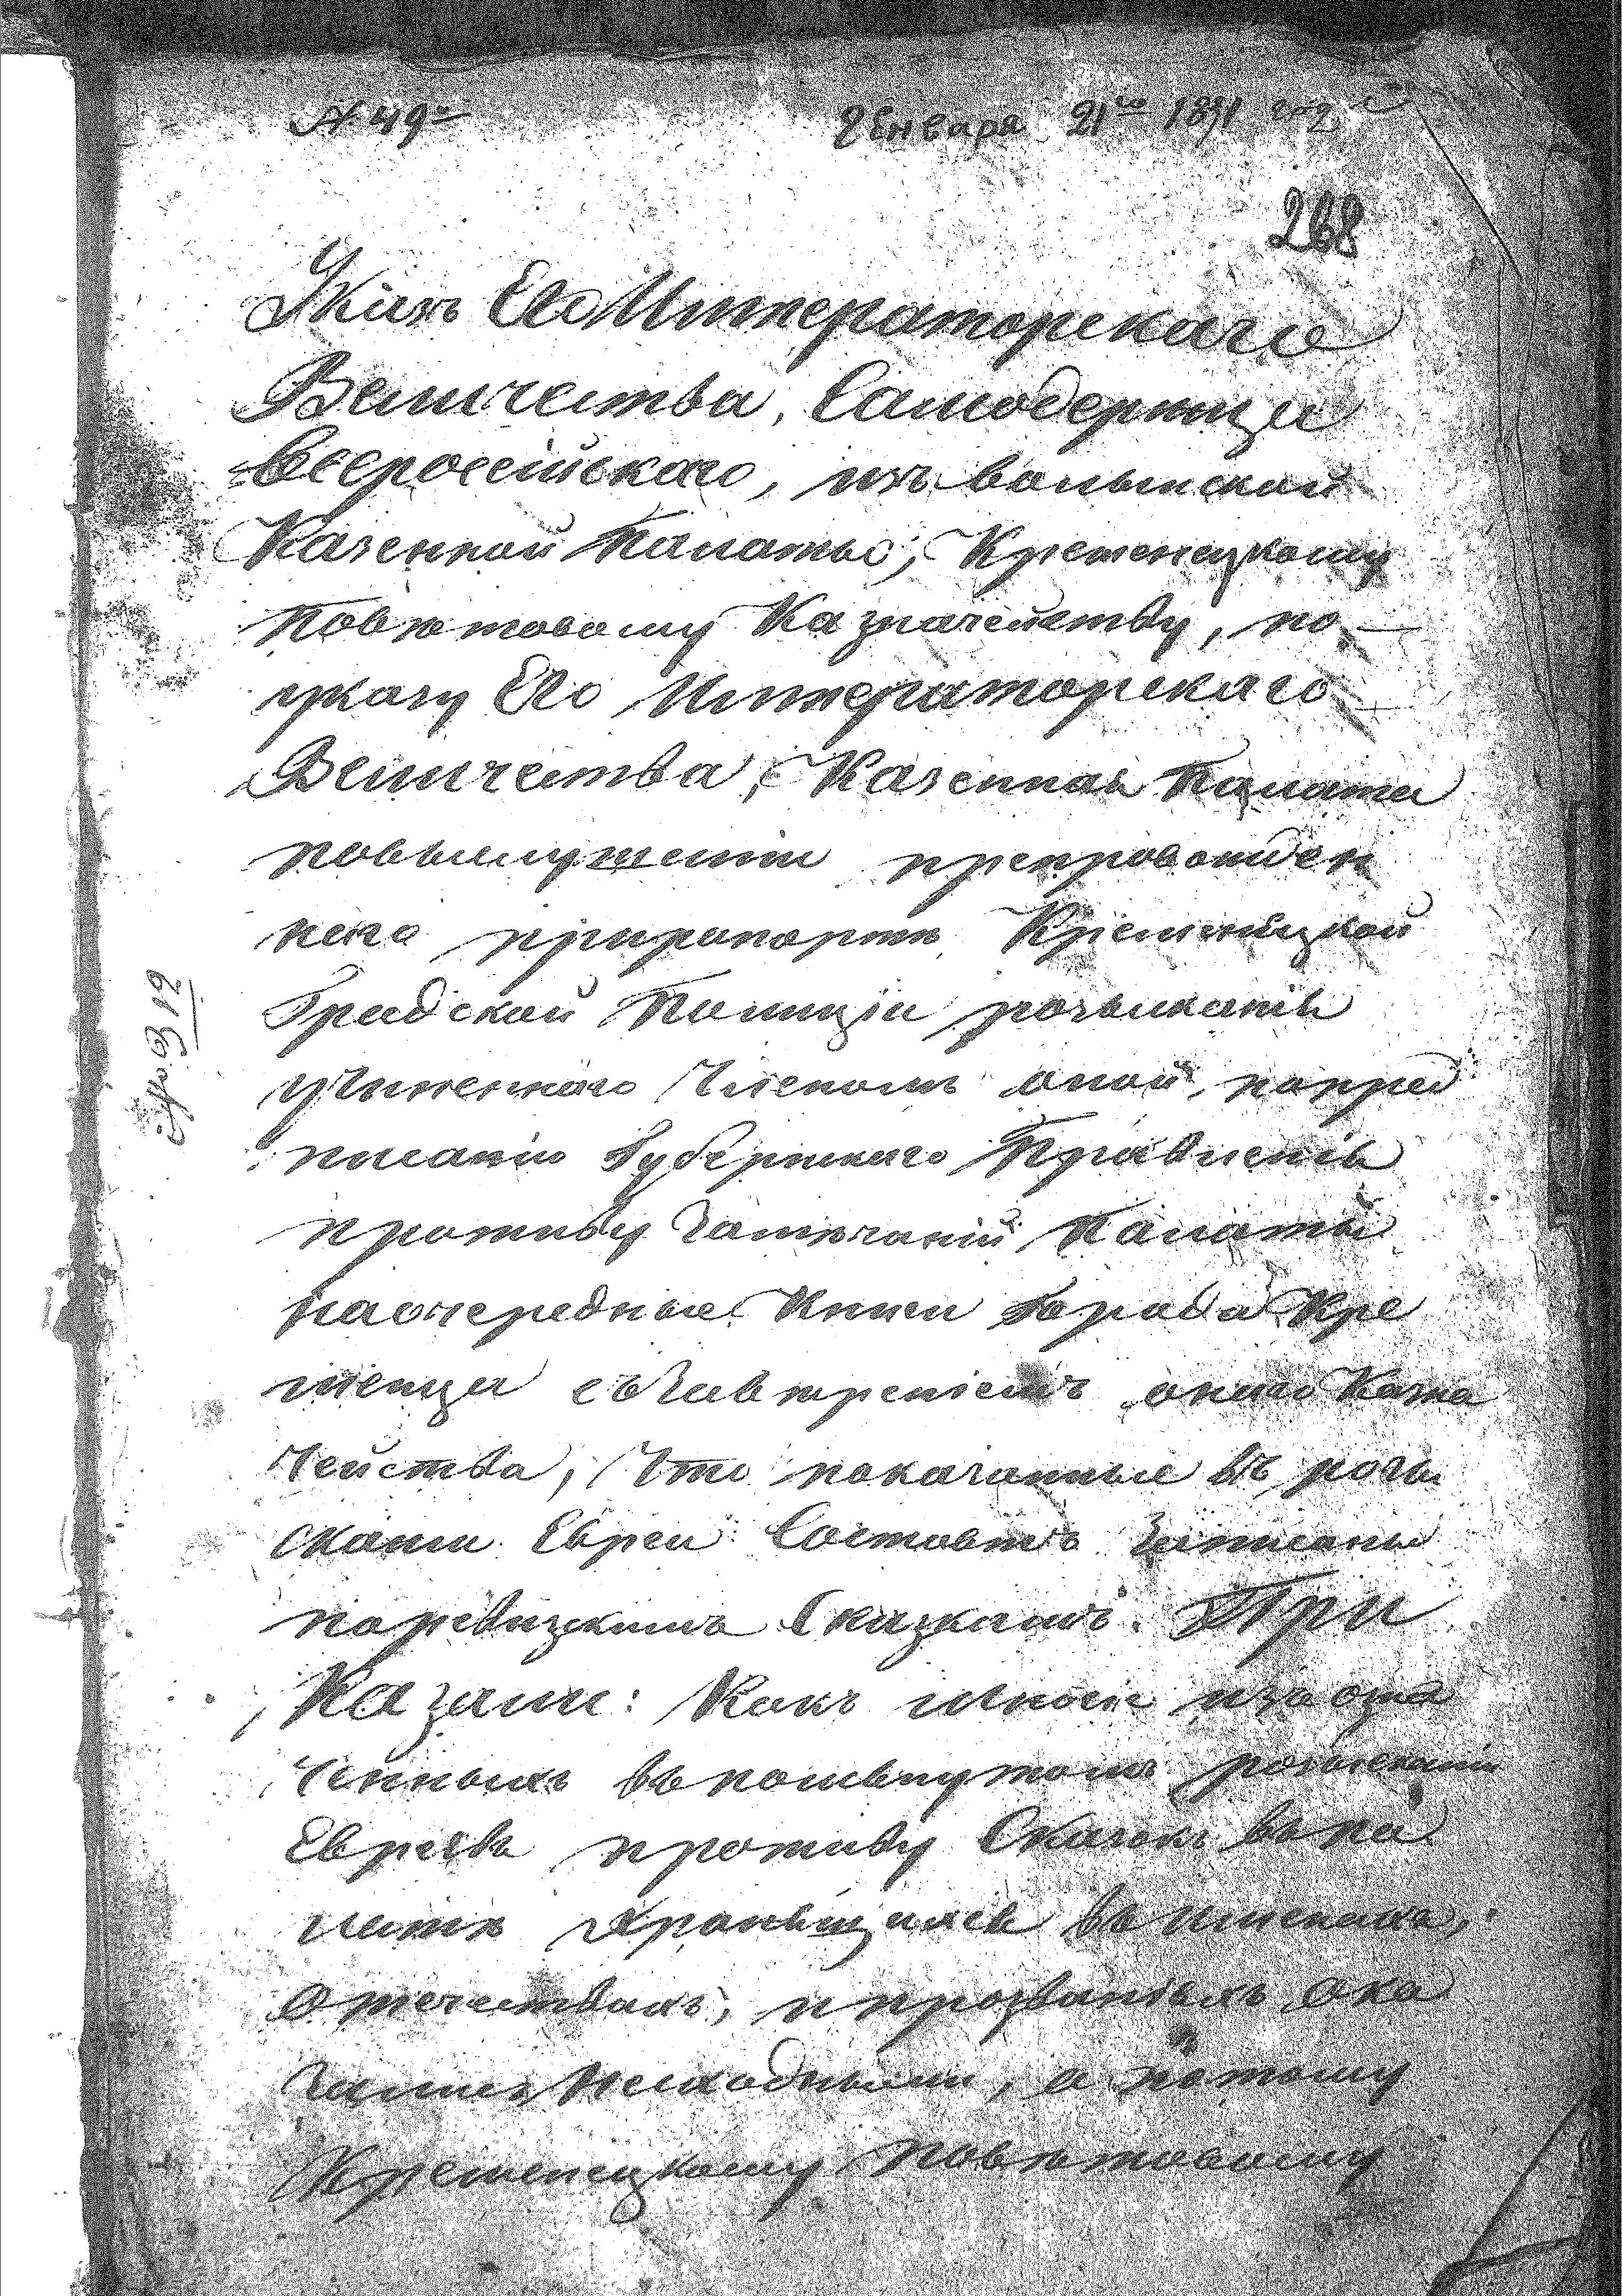 № 49
Генваря 21го 1831 года
268
Указъ Его Императорскаго
Величества, Самодержца
Всероссійскаго, изъ волынской
Казенной Палаты, Кременецкому
Повѣтовому Казначейству, по
указу Его Императорскаго
Величества, Казенная Палата
повыслушаніи препровожден
наго прирапортѣ Кременецкой
Градской Полиціи розысканія
учиненнаго Членомъ оной, попред
писанію Губернскаго Правленія
противу Замѣчаній Палаты
наочередные Книги Города Кре
менца съ Завѣреніемъ онаго Казна
чейства, Что показанные въ розы
сканіи Евреи Состоятъ Записаны
поревизскимъ Сказкамъ. При
Казали: Какъ многіе изъ озна
ченныхъ въ помянутомъ розысканіи
Евреевъ противу Сказокъ въ па
латѣ хранящихся въ именахъ,
Отечествахъ, и прозваніяхъ ока
зались Несходными, а потому
Кременецкому Повѣтовому